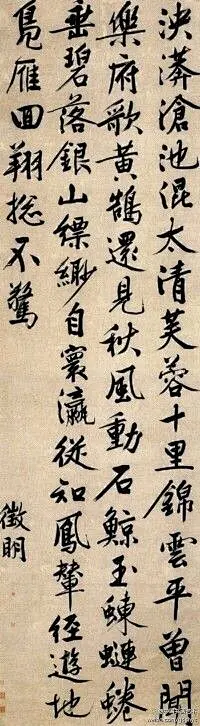 泱漭滄池混太清芙蓉十里錦雲平曾聞
樂府歌黃鵠還見秋風動石鯨玉蝀𧐖蜷
垂碧落銀山縹緲自寰瀛從知鳳輦經遊地
鳧雁回翔捴不驚
徵明